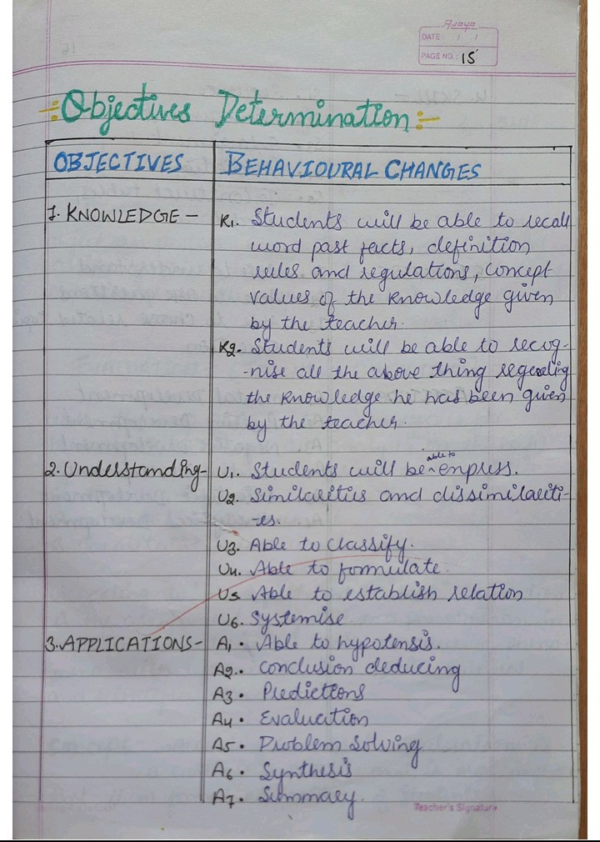 Avaya
DATE: / /
PAGE NO.: 15
:Objectives Determination:-
OBJECTIVES BEHAVIOURAL CHANGES
1. KNOWLEDGE - K1. Students will be able to recall
word past facts, definition
rules and regulations, concept
values of the knowledge given
by the teacher.
K2. Students will be able to recog-
-nise all the above thing regarding
the knowledge he has been given
by the teacher.
2. Understanding- U1. Students will be able to enpress.
U2. Similarities and dissimilariti-
-es.
U3. Able to classify.
U4. Able to formulate.
U5. Able to establish relation
U6. Systemise
3. APPLICATIONS- A1. Able to hypotensis.
A2. Conclusion deducing
A3. Predictions
A4. Evaluation
A5. Problem Solving
A6. Synthesis
A7. Summary.
Teacher's Signature